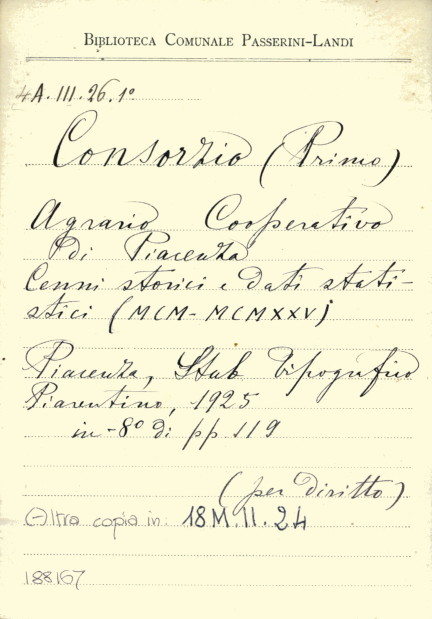 BIBLIOTECA COMUNALE PASSERINI-LANDI
4A.III.26.1º
Consorzio (Primo)
Agrario Cooperativo
di Piacenza
Cenni storici e dati stati-
stici (MCM-MCMXXV)
Piacenza, Stab Tipografico
Piacentino, 1925
in-8º di pp. 119
(per diritto)
Altra copia in: 18M.II.24
188167